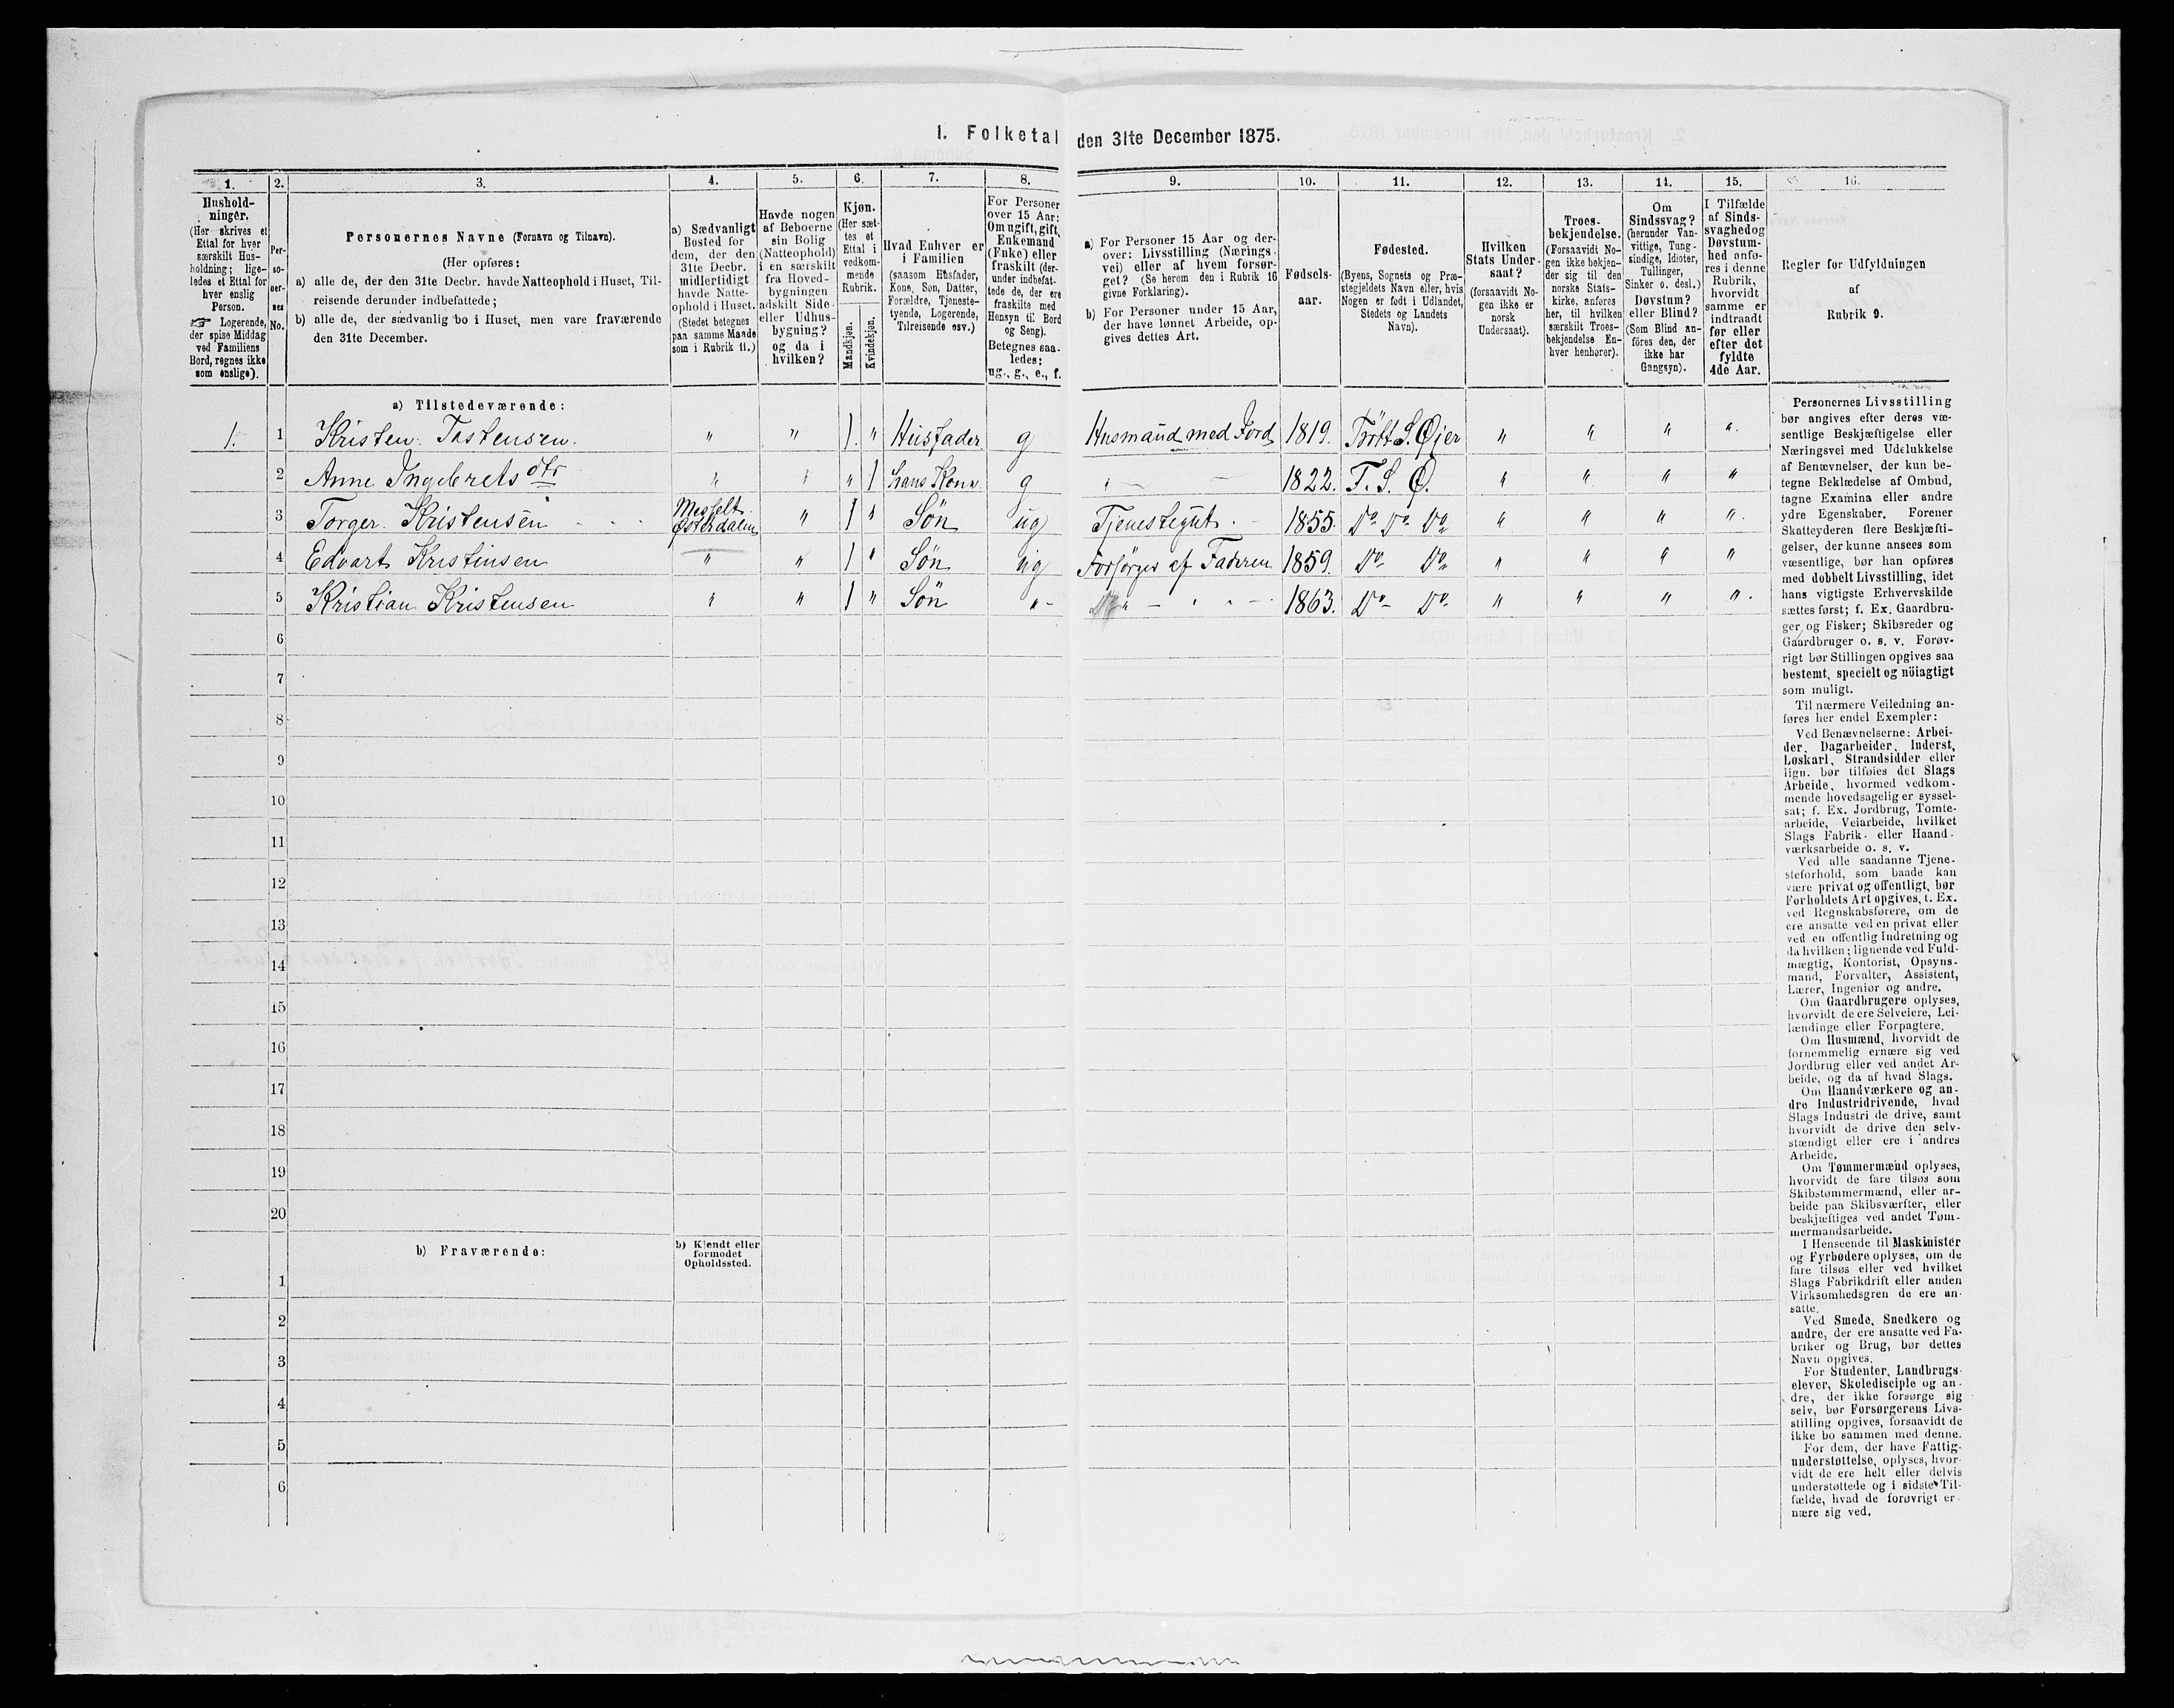 1. Folketal den 31te December 1875.
1. 2. 3. 4. 5. 6. 7. 8. 9. 10. 11. 12. 13. 14. 15. 16.
Hushold-
ninger.
(Her skrives et
Ettal for hver
særskilt Hus-
holdning; lige-
ledes et Ettal for
hver enslig
Person.
☞ Logerende,
der spise Middag
ved Familiens
Bord, regnes ikke
som enslige).
Per-
so-
ner-
nes
No.
Personernes Navne (Fornavn og Tilnavn).
(Her opføres:
a) alle de, der den 31te Decbr. havde Natteophold i Huset, Til-
reisende derunder indbefattede;
b) alle de, der sædvanlig bo i Huset, men vare fraværende
den 31te December.
a) Sædvanligt
Bosted for
dem, der den
31te Decbr.
midlertidigt
havde Natte-
ophold i Huset.
(Stedet betegnes
paa samme Maade
som i Rubrik 11.)
Havde nogen
af Beboerne
sin Bolig
(Natteophold)
i en særskilt
fra Hoved-
bygningen
adskilt Side-
eller Udhus-
bygning?
og da i
hvilken?
Kjøn.
(Her sæt-
tes et
Ettal i
vedkom-
mende
Rubrik.
Mandkjøn.
Kvindekjøn.
Hvad Enhver er
i Familien
(saasom Husfader,
Kone, Søn, Datter,
Forældre, Tjeneste-
tyende, Logerende,
Tilreisende osv.)
For Personer
over 15 Aar:
Om ugift, gift,
Enkemand
(Enke) eller
fraskilt (der-
under indbefat-
tede de, der ere
fraskilte med
Hensyn til Bord
og Seng).
Betegnes saa-
ledes:
ug., g., e., f.
a) For Personer 15 Aar og der-
over: Livsstilling (Nærings-
vei) eller af hvem forsør-
get? (Se herom den i Rubrik 16
givne Forklaring).
b) For Personer under 15 Aar,
der have lønnet Arbeide, op-
gives dettes Art.
Fødsels-
aar.
Fødested.
(Byens, Sognets og Præ-
stegjeldets Navn eller, hvis
Nogen er født i Udlandet,
Stedets og Landets
Navn).
Hvilken
Stats Under-
saat?
(forsaavidt No-
gen ikke er
norsk
Undersaat).
Troes-
bekjendelse.
(Forsaavidt No-
gen ikke bekjen-
der sig til den
norske Stats-
kirke, anføres
her, til hvilken
særskilt Troes-
bekjendelse En-
hver henhører).
Om
Sindssvag?
(herunder Van-
vittige, Tung-
sindige, Idioter,
Tullinger,
Sinker o. desl.)
Døvstum?
eller Blind?
(Som Blind an-
føres den, der
ikke har
Gangsyn).
I Tilfælde
af Sinds-
svaghed og
Døvstum-
hed anfø-
res i denne
Rubrik,
hvorvidt
samme er
indtraadt
før eller
efter det
fyldte
4de Aar.
Regler for Udfyldningen
af
Rubrik 9.
a) Tilstedeværende:
1. 1 Kristen Tostensen. " " 1. " Husfader g Husmand med Jord 1819. Tøtt S. Øjer " " " "
2 Anne Ingebrets dtr " " " 1 hans Kone g " 1822. F. S. Ø. " " " "
3 Torger Kristensen Messelt Østerdalen " 1 " Søn ug Tjenestegut. 1855. Do Do Do " " " "
4 Edvart Kristensen " " 1 " Søn ug Forsørges af Faderen 1859. Do Do " " " "
5 Kristian Kristensen " " 1 " Søn " Do 1863. Do Do " " " "
6
7
8
9
10
11
12
13
14
15
16
17
18
19
20
b) Fraværende:
b) Kjendt eller
formodet
Opholdssted.
1
2
3
4
5
6
Personernes Livsstilling
bør angives efter deres væ-
sentlige Beskjæftigelse eller
Næringsvei med Udelukkelse
af Benævnelser, der kun be-
tegne Beklædelse af Ombud,
tagne Examina eller andre
ydre Egenskaber. Forener
Skatteyderen flere Beskjæfti-
gelser, der kunne ansees som
væsentlige, bør han opføres
med dobbelt Livsstilling, idet
hans vigtigste Erhvervskilde
sættes først; f. Ex. Gaardbru-
ger og Fisker; Skibsreder og
Gaardbruger o. s. v. Forøv-
rigt bør Stillingen opgives saa
bestemt, specielt og nöiagtigt
som muligt.
Til nærmere Veiledning an-
føres her endel Exempler:
Ved Benævnelserne: Arbei-
der, Dagarbeider, Inderst,
Løskarl, Strandsidder eller
lign. bør tilføies det Slags
Arbeide, hvormed vedkom-
mende hovedsagelig er syssel-
sat; f. Ex. Jordbrug, Tomte-
arbeide, Veiarbeide, hvilket
Slags Fabrik- eller Haand-
værksarbeide o. s. v.
Ved alle saadanne Tjene-
steforhold, som baade kan
være privat og offentligt, bør
Forholdets Art opgives, t. Ex.
ved Regnskabsførere, om de
ere ansatte ved en privat eller
ved en offentlig Indretning og
da hvilken; lignende ved Fuld-
mægtig, Kontorist, Opsyns-
mand, Forvalter, Assistent,
Lærer, Ingeniør og andre.
Om Gaardbrugere oplyses,
hvorvidt de ere Selveiere, Lei-
lændinge eller Forpagtere.
Om Husmænd, hvorvidt de
fornemmelig ernære sig ved
Jordbrug eller ved andet Ar-
beide, og da af hvad Slags.
Om Haandværkere og an-
dre Industridrivende, hvad
Slags Industri de drive, samt
hvorvidt de drive den selv-
stændigt eller ere i andres
Arbeide.
Om Tømmermænd oplyses,
hvorvidt de fare tilsøs som
Skibstømmermænd, eller ar-
beide paa Skibsværfter, eller
beskjæftiges ved andet Tøm-
mermandsarbeide.
I Henseende til Maskinister
og Fyrbødere oplyses, om de
fare tilsøs eller ved hvilket
Slags Fabrikdrift eller anden
Virksomhedsgren de ere an-
satte.
Ved Smede, Snedkere og
andre, der ere ansatte ved Fa-
briker og Brug, bør dettes
Navn opgives.
For Studenter, Landbrugs-
elever, Skoledisciple og an-
dre, der ikke forsørge sig
selv, bør Forsørgerens Livs-
stilling opgives, forsaavidt de
ikke bo sammen med denne.
For dem, der have Fattig-
understøttelse, oplyses, hvor-
vidt de ere helt eller delvis
understøttede og i sidste Til-
fælde, hvad de forøvrigt er-
nære sig ved.